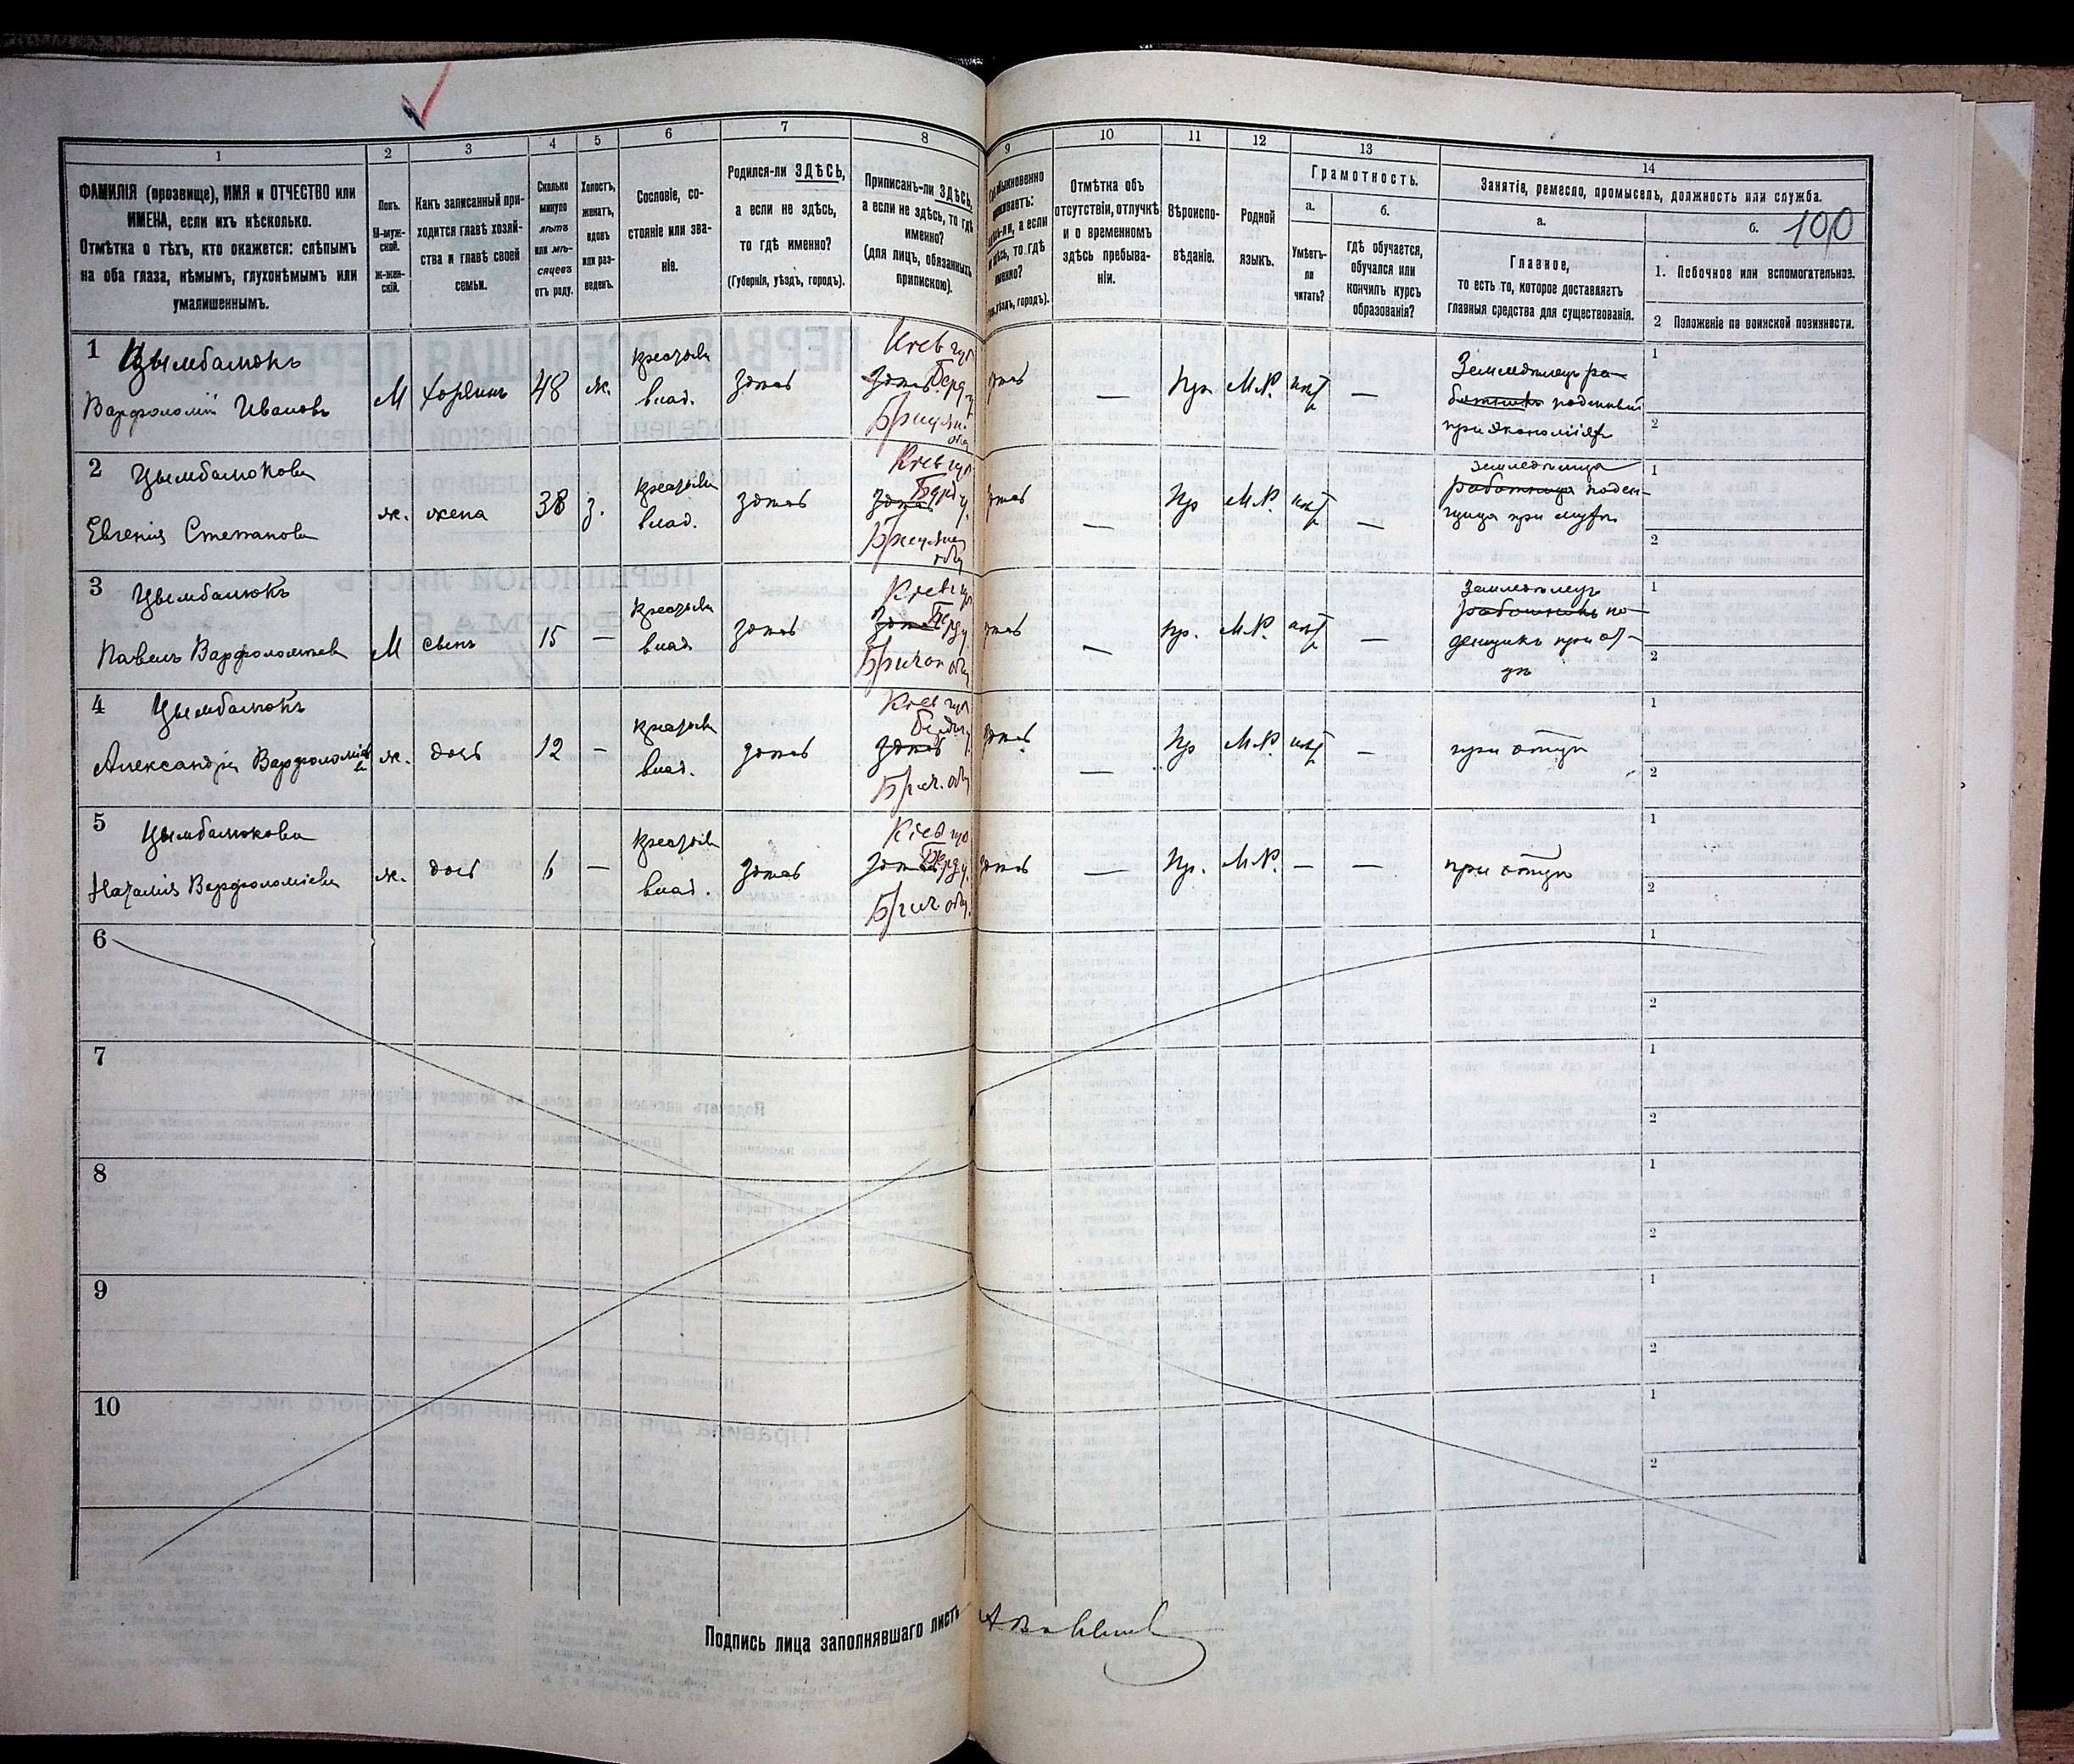 1
2
3
4
5
6
7
8
9
10
11
12
13
14
ФАМИЛІЯ (прозвище), ИМЯ и ОТЧЕСТВО или
ИМЕНА, если ихъ нѣсколько.
Отмѣтка о тѣхъ, кто окажется: слѣпымъ
на оба глаза, нѣмымъ, глухонѣмымъ или
умалишеннымъ.
Полъ.
М-муж-
ской.
Ж-жен-
скій.
Какъ записанный при-
ходится главѣ хозяй-
ства и главѣ своей
семьи.
Сколько
минуло
лѣтъ
или мѣ-
сяцевъ
отъ роду.
Холостъ,
женатъ,
вдовъ
или раз-
веденъ.
Сословіе, со-
стояніе или зва-
ніе.
Родился-ли ЗДѢСЬ,
а если не здѣсь,
то гдѣ именно?
(Губернія, уѣздъ, городъ).
Приписанъ-ли ЗДѢСЬ,
а если не здѣсь, то гдѣ
именно?
(для лицъ, обязанныхъ
припискою).
Отмѣтка объ
отсутствіи, отлучкѣ
и о временномъ
здѣсь пребыва-
ніи.
Вѣроиспо-
вѣданіе.
Родной
языкъ.
Грамотность.
а.
Умѣетъ-
ли
читать?
б.
гдѣ обучается,
обучался или
кончилъ курсъ
образованія?
Занятіе, ремесло, промыселъ, должность или служба.
а.
Главное,
то есть то, которое доставляетъ
главныя средства для существованія.
б.
100
1. Побочное или вспомогательное.
2 Положеніе по воинской повинности.
1 Цымбалюкъ
Варфоломій Ивановъ
М
хозяинъ
48
ж.
крестьян
влад.
здѣсь
Кіев губ
здѣсь Берд у
здѣсь
—
Пр.
М.Р.
нѣт
—
Земледѣлец ра-
ботникъ поденный
при экономіях
1
2
2 Цымбалюкова
Евгенія Степанова
ж.
жена
38
з.
крестьян
влад.
здѣсь
Кіев губ
Берд у.
здѣсь
здѣсь
—
Пр
М.Р.
нѣт
—
земледѣлица
работница поден-
щица при мужѣ
1
2
3 Цымбалюкъ
Павелъ Варфоломѣевъ
М
сынъ
15
—
крестьян
влад
здѣсь
Кіев губ
здѣсь Берд у
здѣсь
—
пр.
М.Р.
нѣт
—
земледѣлец
работникъ по-
денщикъ при от-
цѣ
1
2
4 Цымбалюкъ
Александра Варфоломіева
ж.
дочь
12
—
крестьян
влад.
здѣсь
Кіев губ
Бердич
здѣсь
Брич. общ
здѣсь
—
Пр
М.Р.
нѣт
—
при отцѣ
1
2
5 Цымбалюкова
Наталія Варфоломіева
ж.
дочь
6
—
крестьян
влад.
здѣсь
Кіев губ
здѣсь Берд у.
Брич общ.
здѣсь
—
Пр.
М.Р.
—
—
при отцѣ
1
2
6
1
2
7
1
2
8
1
2
9
1
2
10
1
2
Подпись лица заполнявшаго листъ